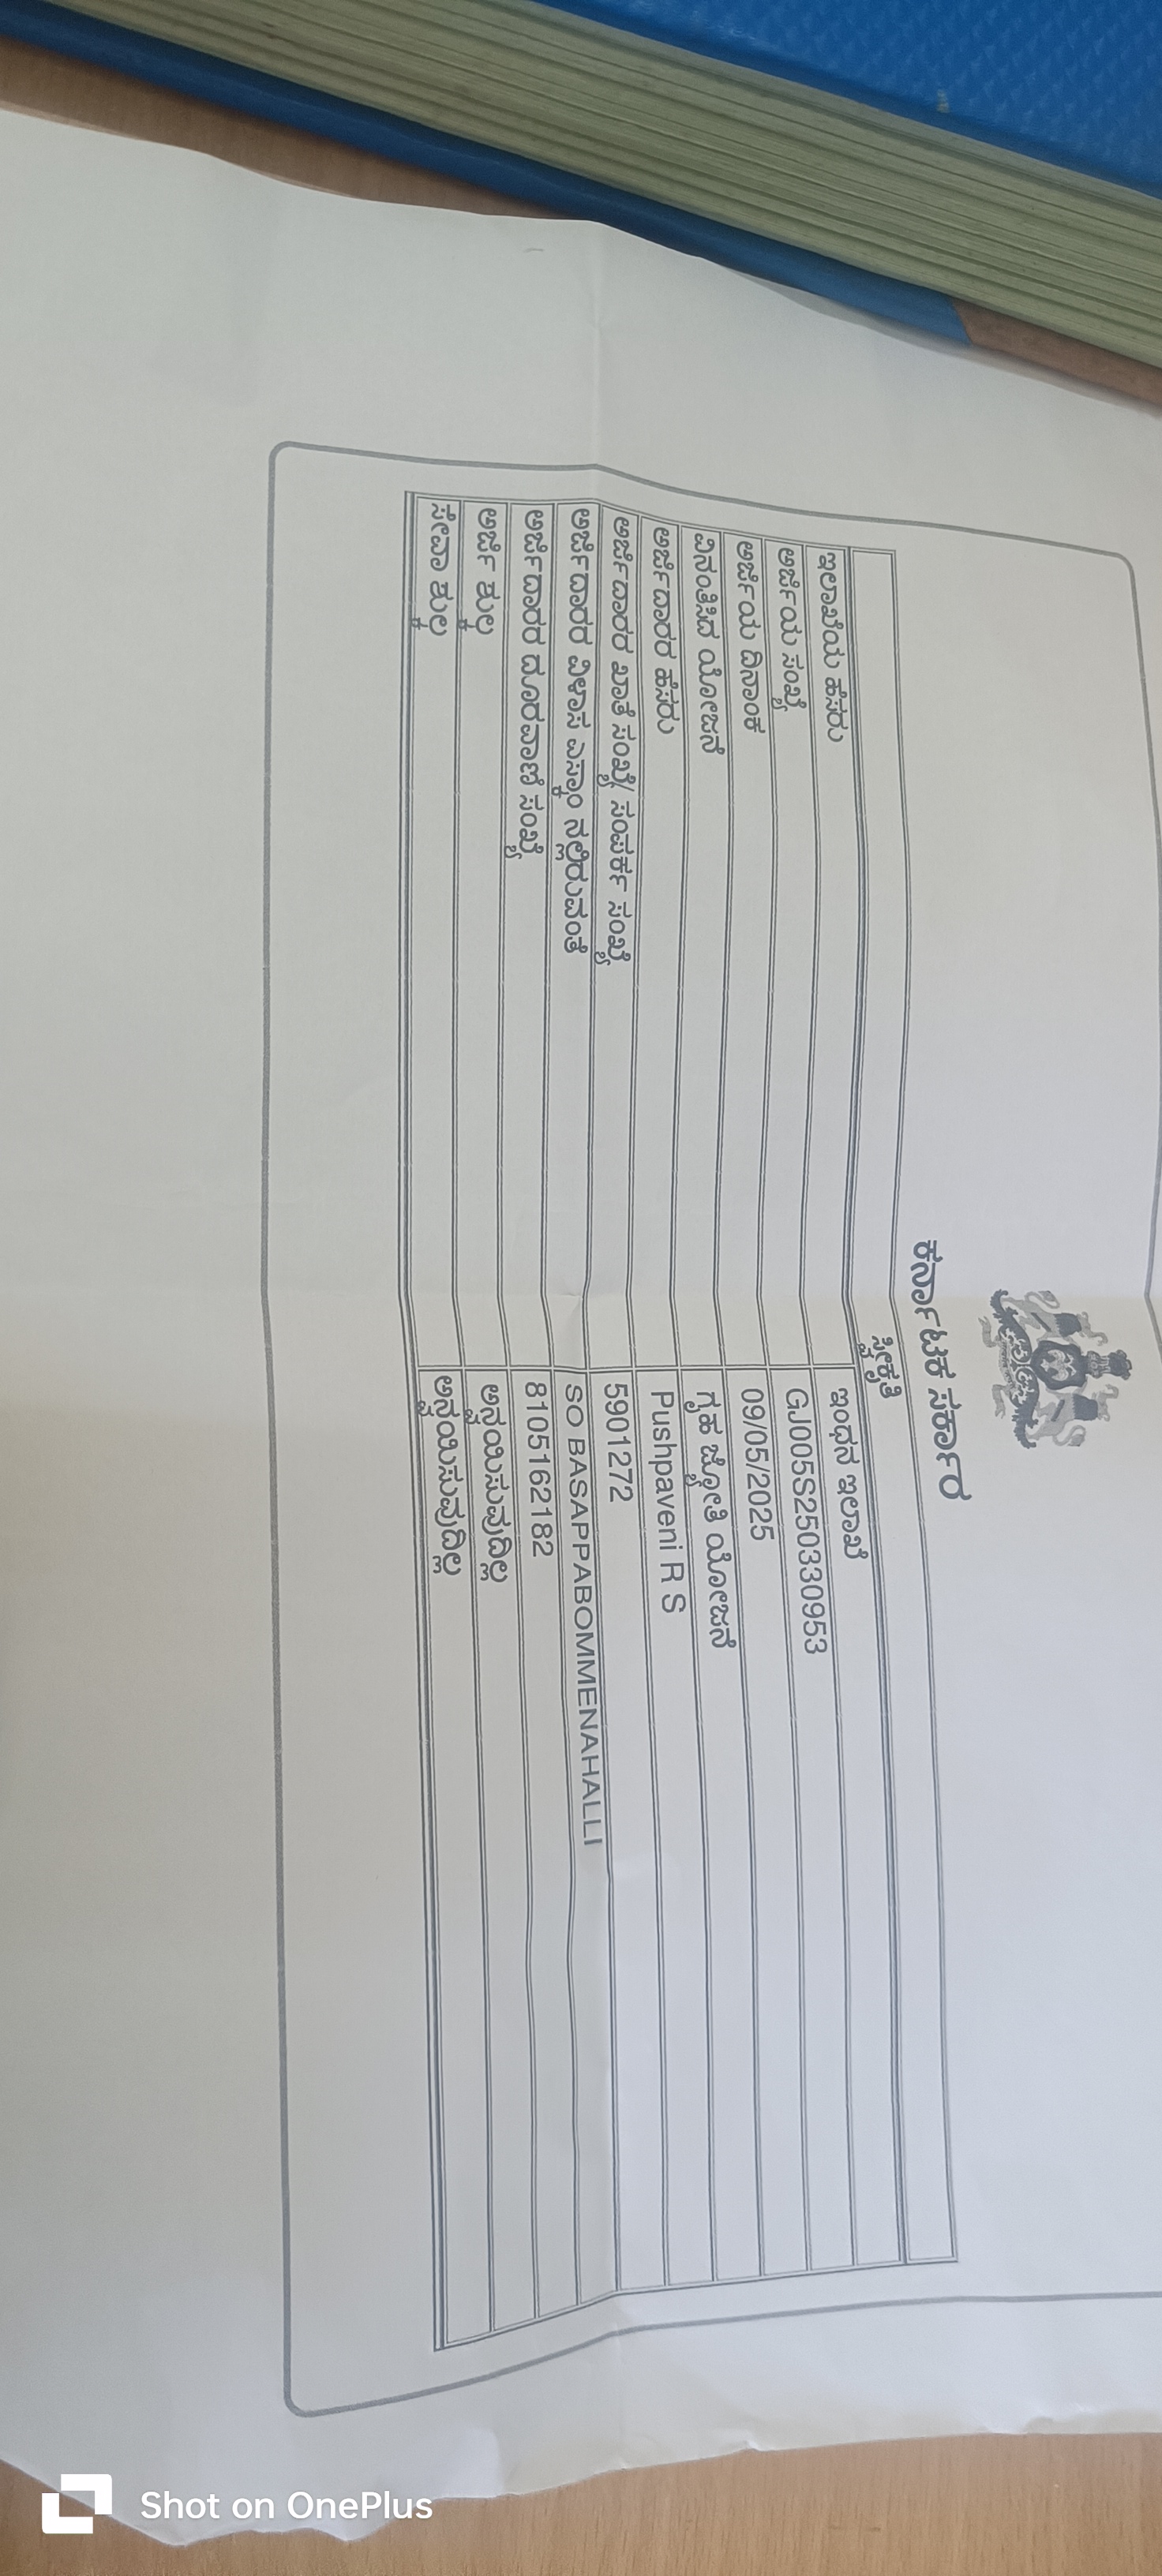 ಕರ್ನಾಟಕ ಸರ್ಕಾರ
ಸ್ವೀಕೃತಿ
ಇಲಾಖೆಯ ಹೆಸರು ಇಂಧನ ಇಲಾಖೆ
ಅರ್ಜಿಯ ಸಂಖ್ಯೆ GJ005S250330953
ಅರ್ಜಿಯ ದಿನಾಂಕ 09/05/2025
ವಿನಂತಿಸಿದ ಯೋಜನೆ ಗೃಹ ಜ್ಯೋತಿ ಯೋಜನೆ
ಅರ್ಜಿದಾರರ ಹೆಸರು Pushpaveni R S
ಅರ್ಜಿದಾರರ ಖಾತೆ ಸಂಖ್ಯೆ/ ಸಂಪರ್ಕ ಸಂಖ್ಯೆ 5901272
ಅರ್ಜಿದಾರರ ವಿಳಾಸ ಎಸ್ಕಾಂ ನಲ್ಲಿರುವಂತೆ SO BASAPPABOMMENAHALLI
ಅರ್ಜಿದಾರರ ದೂರವಾಣಿ ಸಂಖ್ಯೆ 8105162182
ಅರ್ಜಿ ಶುಲ್ಕ ಅನ್ವಯಿಸುವುದಿಲ್ಲ
ಸೇವಾ ಶುಲ್ಕ ಅನ್ವಯಿಸುವುದಿಲ್ಲ
Shot on OnePlus